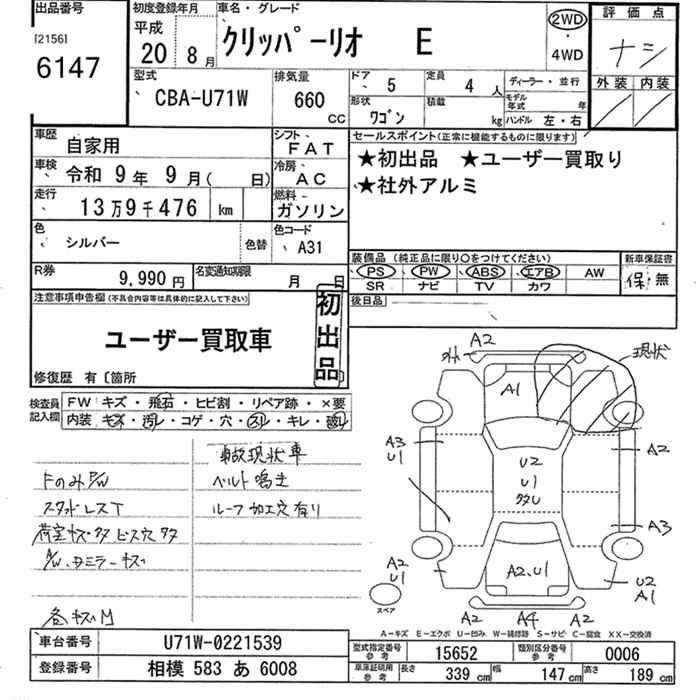 出品番号
[2156]
6147
初度登録年月
平成 20年 8月
車名・グレード
クリッパーリオ E
2WD
・
4WD
評価点
ナシ
外装 内装
型式
CBA-U71W
排気量
660 CC
ドア 5
定員 4人
ディーラー・並行
形状 ワゴン
積載 kg
モデル年式 年
ハンドル 左・右
車歴 自家用
車検 令和 9年 9月( 日)
走行 13万9千476 km
色 シルバー 色替
シフト FAT
冷房 AC
燃料 ガソリン
色コード A31
セールスポイント(正常に機能するものに限ります)
★初出品 ★ユーザー買取り
★社外アルミ
R券 9,990円
名変通知期限 月 日
装備品 (純正品に限り○をつけてください)
PS PW ABS エアB AW
SR ナビ TV カワ
新車保証書
保・無
後日品
注意事項申告欄(不具合内容等は具体的に記入して下さい)
ユーザー買取車
初出品
修復歴 有〔箇所
検査員記入欄
FW キズ・飛石・ヒビ割・リペア跡・×要
内装 キズ・汚レ・コゲ・穴・スレ・キレ・破レ
事故現状車
FのみP/W
ベルト鳴き
スタッドレスT
ルーフ加工穴有り
荷室キズ多ビス穴多
各キズM
現状
A2
A1
A3
U1
A2
U2
U1
多U
A3
A2
U1
A2.U1
U2
A1
スペア
A2 A4 A2
A-キズ E-エクボ U-凹み W-補修跡 S-サビ C-腐食 XX-交換済
車台番号 U71W-0221539
登録番号 相模 583 あ 6008
型式指定番号 参考 15652
類別区分番号 参考 0006
車庫証明用 参考 長さ 339 cm 幅 147 cm 高さ 189 cm